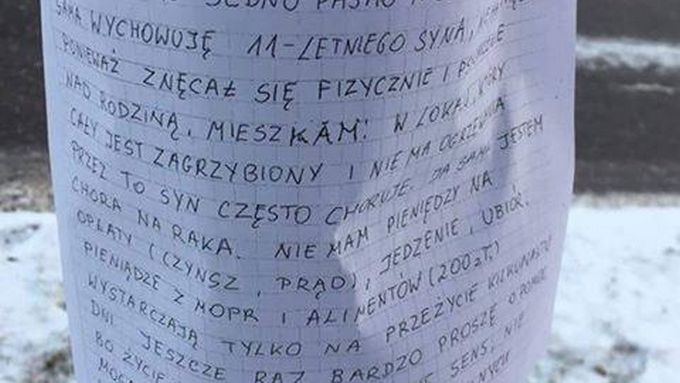 JEDNO PASMO
SAMA WYCHOWUJĘ 11-LETNIEGO SYNA,
PONIEWAŻ ZNĘCAŁ SIĘ FIZYCZNIE I
NAD RODZINĄ. MIESZKAM! W LOKALU, KTÓRY
CAŁY JEST ZAGRZYBIONY I NIE MA OGRZEWANIA
PRZEZ TO SYN CZĘSTO CHORUJE. JA SAMA JESTEM
CHORA NA RAKA. NIE MAM PIENIĘDZY NA
OPŁATY (CZYNSZ, PRĄD), JEDZENIE, UBIÓR.
PIENIĄDZE Z MOPR I ALIMENTÓW (200 ZŁ)
WYSTARCZAJĄ TYLKO NA PRZEŻYCIE KILKUNASTU
DNI JESZCZE RAZ BARDZO PROSZĘ O POMOC
BO ŻYCIE SENS, NIE